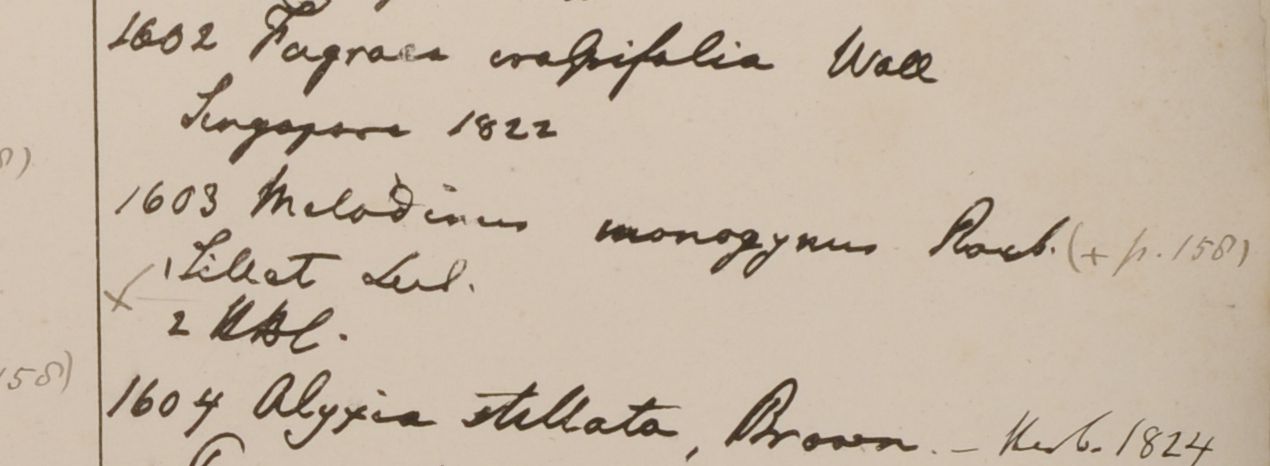 1602 Fagraea crassifolia Wall
Singapore 1822
1603 Melodinus monogynus Roxb. (+ p. 158)
1 Sillet Lud.
2 HBC.
1604 Alyxia stellata, Brown. – Herb. 1824